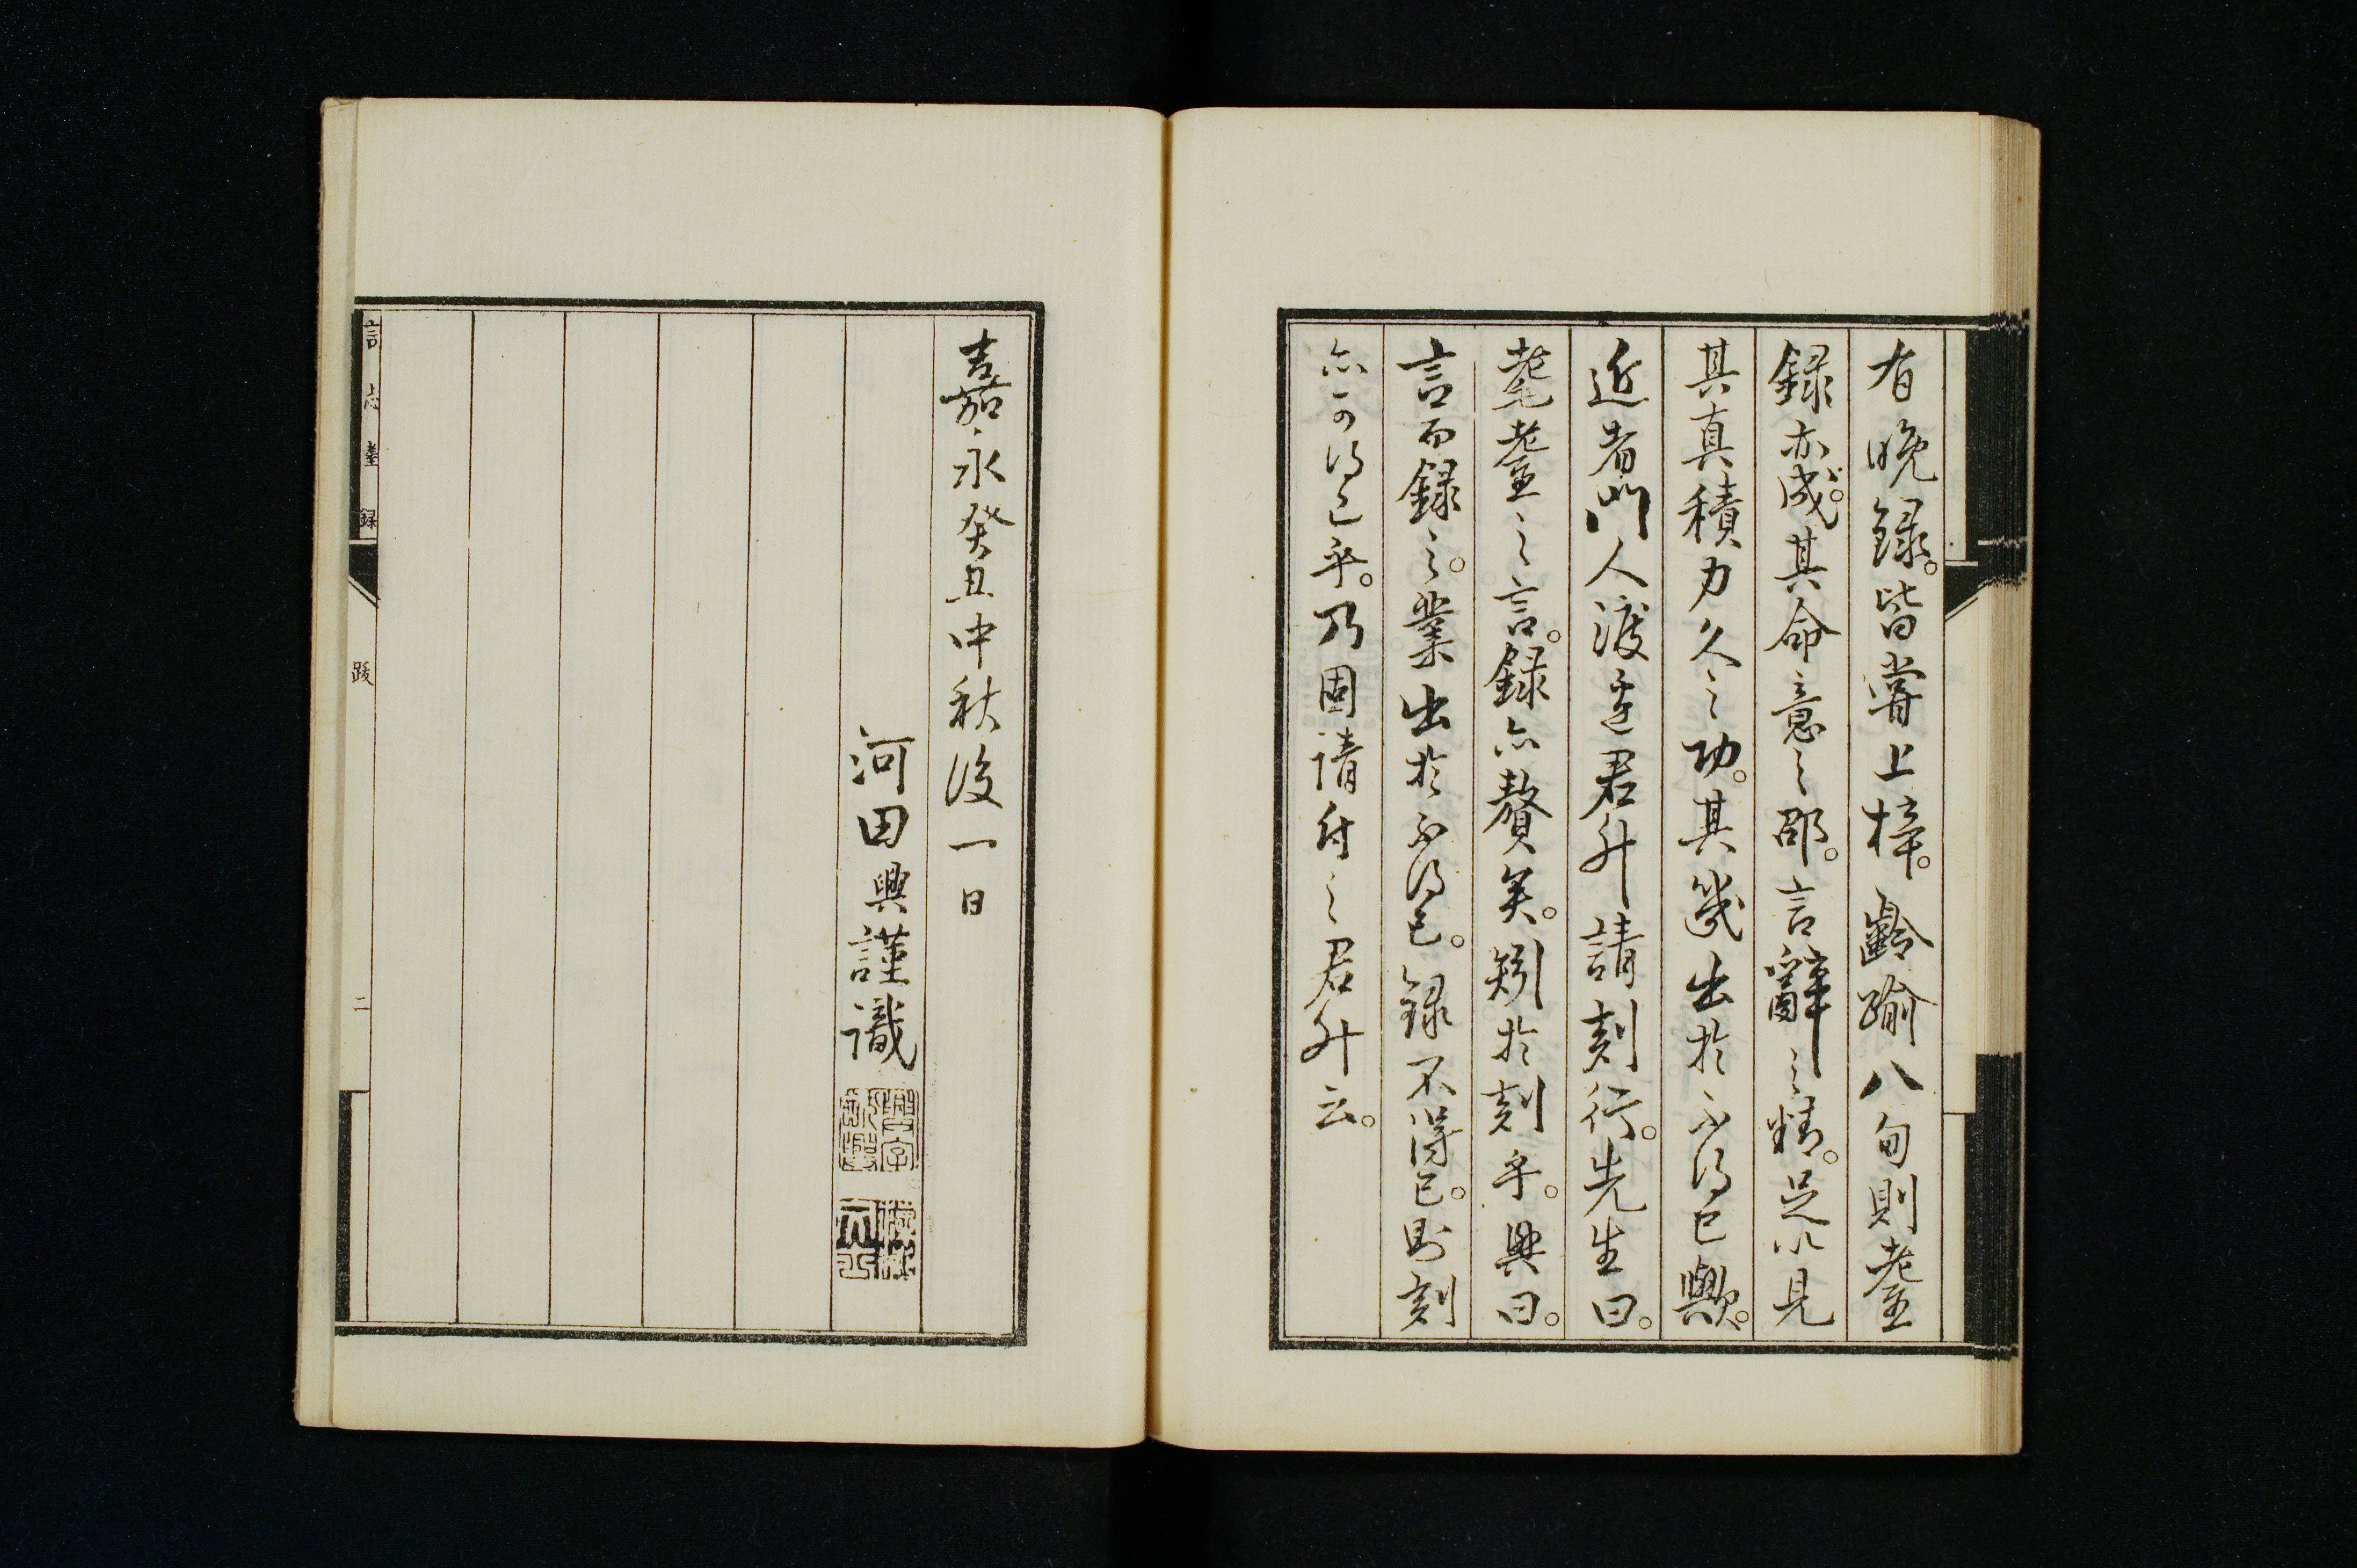 有晩録。皆嘗上梓。齡踰八旬則耋
録亦成。其命意之邵。言辭之精。足以見
其真積力久之功。其幾出於不得已歟。
近者門人渡邊君升請刻行。先生曰。
耄耋之言。録亦贅矣。矧於刻乎。興曰。
言而録之。業出於不得已。録不得已。則刻
亦可得已乎。乃固請付之君升云。
嘉永癸丑中秋後一日
河田興謹識
言志耋録
跋
二